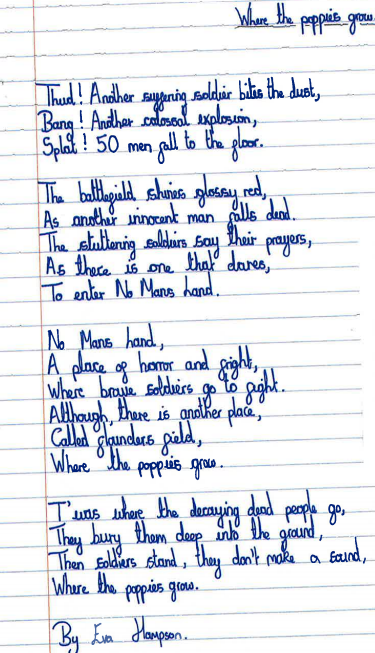 Where the poppies grow.
Thud! Another suffering soldier bites the dust,
Bang! Another colossal explosion,
Splat! 50 men fall to the floor.
The battlefield shines glossy red,
As another innocent man falls dead.
The stuttering soldiers say their prayers,
As there is one that dares,
To enter No Mans Land.
No Mans Land,
A place of horror and fright,
Where brave soldiers go to fight.
Although, there is another place,
Called flanders field,
Where the poppies grow.
T'was where the decaying dead people go,
They bury them deep into the ground,
Then soldiers stand, they don't make a sound,
Where the poppies grow.
By Eva Hampson.